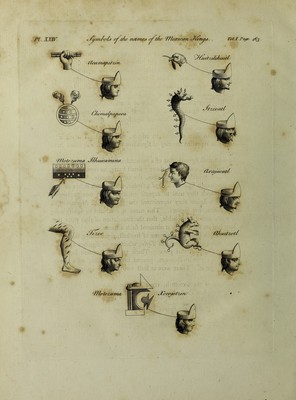 Pl. XXIV. Symbols of the names of the Mexican Kings. Vol. I. Page 163.
Acamapitzin Huitzilihuitl
Chimalpopoca Itzcoatl
Motezuma Ilhuicamina Axayacatl
Tizoc Ahuitzotl
Motezuma Xocojotzin